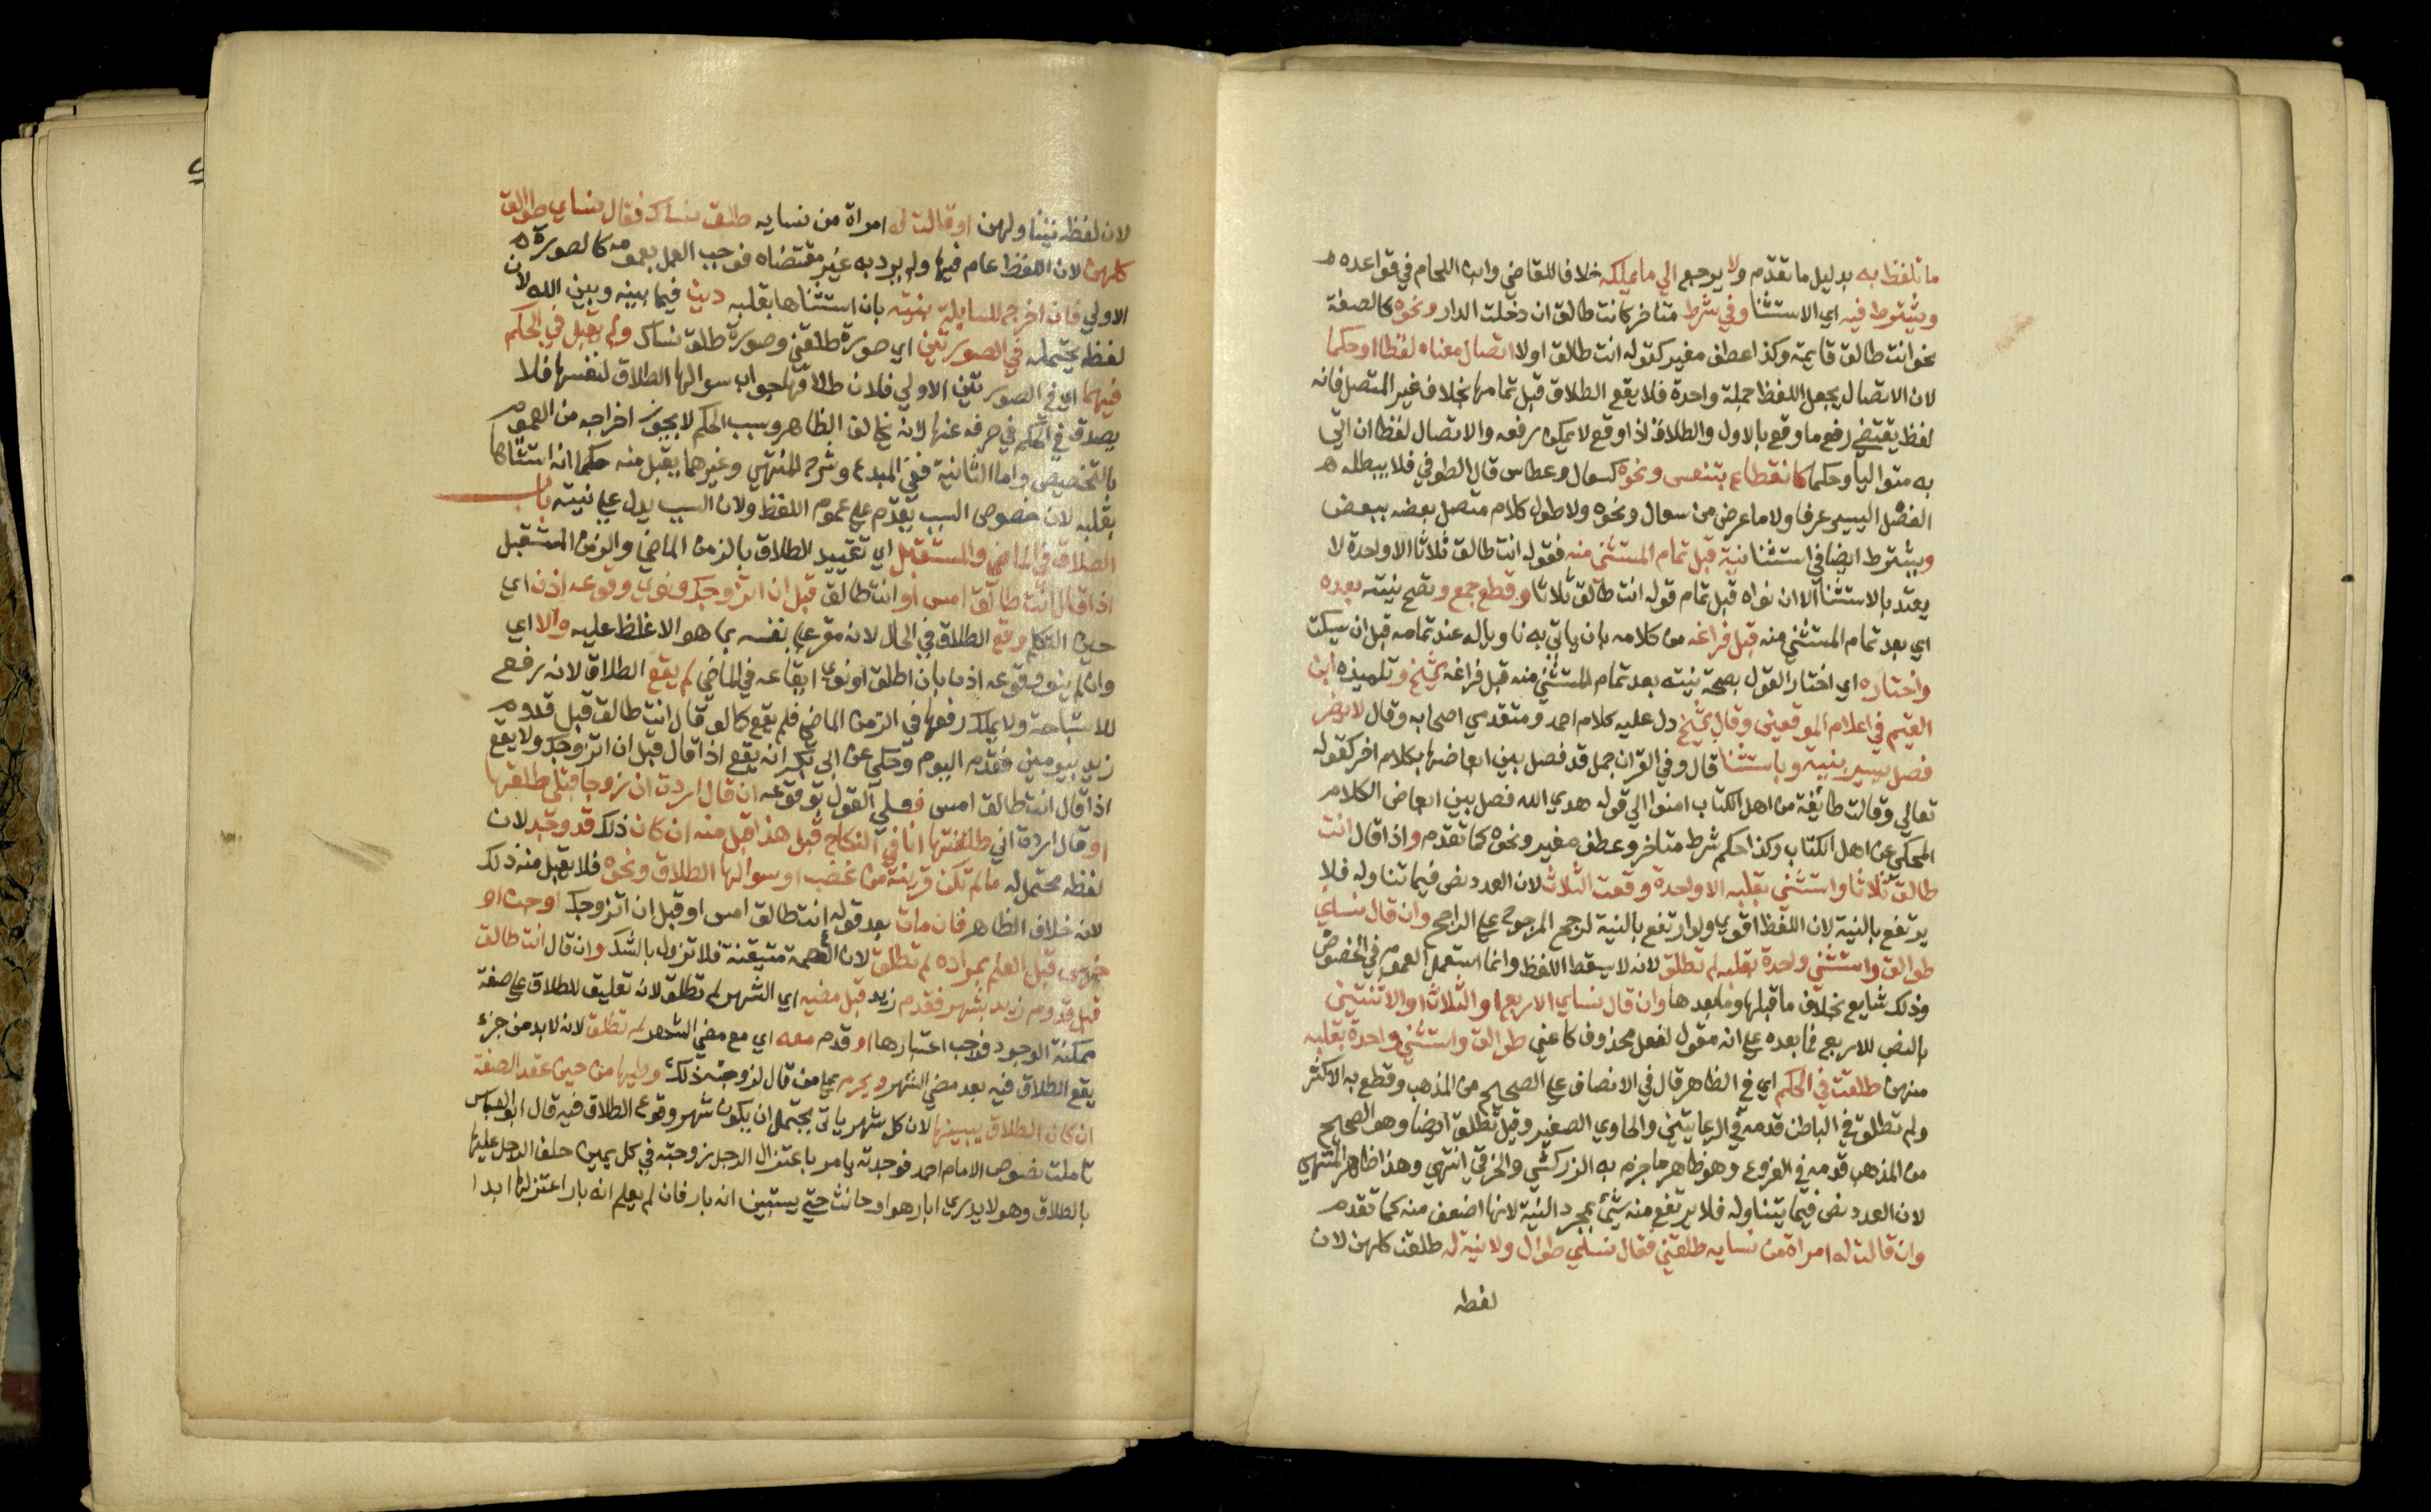 ما تلفظ به بدليل ما تقدم ولا يرجع الي ما يملكه خلافا للقاضي وابن اللحام في قواعده
ويشترط فيه اي الاستثنا وفي شرط متاخر كانت طالق ان دخلت الدار ونحوه كالصفة
نحو انت طالق قايمة وكذا عطف مغير كقوله انت طالق اولا اتصال معناه لفظا او حكما
لان الاتصال يجعل اللفظ جملة واحدة فلا يقع الطلاق قبل تمامها بخلاف غير المتصل فانه
لفظ يقتضي رفع ما وقع بالاول والطلاق اذا وقع لا يمكن رفعه والاتصال لفظا ان ياتي
به متواليا وحكما كانقطاع بتنفس ونحوه كسعال وعطاس قال الطوفي فلا يبطله
الفصل اليسير عرفا ولا ما عرض من سعال ونحوه ولا طول كلام متصل بعضه ببعض
ويشترط ايضا في استثنا نية قبل تمام المستثنى منه فقوله انت طالق ثلاثا الا واحدة لا
يعتد بالاستثنا الا ان نواه قبل تمام قوله انت طالق ثلاثا وقطع جمع وتصح نيته بعده
اي بعد تمام المستثني منه قبل فراغه من كلامه بان ياتي به ناويا له عند تمامه قبل ان يسكت
واختاره اي اختار القول بصحة نيته بعد تمام المستثني منه قبل فراغه الشيخ وتلميذه ابن
القيم في اعلام الموقعين وقال الشيخ دل عليه كلام احمد ومتقدمي اصحابه وقال لا يضر
فصل يسير بنية وباستثنا قال وفي القران جمل قد فصل بين ابعاضها بكلام اخر كقوله
تعالي وقالت طائفة من اهل الكتاب امنوا الي قوله هدي الله فصل بين ابعاض الكلام
المحكي عن اهل الكتاب وكذا حكم شرط متاخر وعطف مغير ونحوه كما تقدم واذا قال انت
طالق ثلاثا واستثني بقلبه الا واحدة وقعت الثلاث لان العدد نص فيما تناوله فلا
يرتفع بالنية لان اللفظ اقوي ولو ارتفع بالنية لرجح المرجوح علي الراجح وان قال نساي
طوالق واستثني واحدة بقلبه لم تطلق لانه لا يسقط اللفظ وانما استعمل العموم في الخصوص
وذلك شايع بخلاف ما قبلها وما بعدها وان قال نساي الاربع او الثلاث او الاثنتين
بالنصب للاربع فما بعده علي انه مقول لفعل محذوف كاعني طوالق واستثني واحدة بقلبه
منهن طلقت في الحكم اي في الظاهر قال في الانصاف علي الصحيح من المذهب وقطع به الاكثر
ولم تطلق في الباطن قدمه في الرعايتين والحاوي الصغير وقيل تطلق ايضا وهو الصحيح
من المذهب قدمه في الفروع وهو ظاهر ما جزم به الزركشي والخرقي انتهي وهذا ظاهر المنتهي
لان العدد نص فيما يتناوله فلا يرتفع منه شئ بمجرد النية لانها اضعف منه كما تقدم
وان قالت له امراة من نسايه طلقني فقال نساي طوالق ولا نية له طلقن كلهن لان
لفظه
لان لفظه يتناولهن او قالت له امراة من نسايه طلق نساك فقال نساي طوالق
كلهن لان اللفظ عام فيها ولم يرد به غير مقتضاه فوجب العمل بعمومه كالصورة
الاولي فان اخرج السايلة بنيته بان استثناها بقلبه دين فيما بينه وبين الله لان
لفظه يحتمله في الصورتين اي صورة طلقني وصورة طلق نساك ولم يقبل في الحكم
فيهما اي في الصورتين الاولي فلان طلاقها جواب سوالها الطلاق لنفسها فلا
يصدق في الحكم في صرفه عنها لانه يخالف الظاهر وسبب الحكم لا يجوز اخراجه من العموم
بالتخصيص واما الثانية ففي المبدع وشرح المنتهي وغيرهما يقبل منه حكما انه استثناها
بقلبه لان خصوص السبب يقدم علي عموم اللفظ ولان السبب يدل علي نيته باب
الطلاق في الماضي والمستقبل اي تقييد الطلاق بالزمن الماضي والزمن المستقبل
اذا قال انت طالق امس او انت طالق قبل ان اتزوجك ونوي وقوعه اذن اي
حين التكلم وقع الطلاق في الحال لانه مقر علي نفسه بما هو الاغلظ عليه والا اي
وان لم ينو وقوعه اذن بان اطلق او نوي ايقاعه في الماضي لم يقع الطلاق لانه رفع
للاستباحة ولا يملك رفعها في الزمن الماضي فلم يقع كما لو قال انت طالق قبل قدوم
زيد بيومين فقدم اليوم وحكي عن ابي بكر انه يقع اذا قال قبل ان اتزوجك ولا يقع
اذا قال انت طالق امس فعلي القول بوقوعه ان قال اردت ان زوجا قبلي طلقها
او قال اردت اني طلقتها انا في النكاح قبل هذا قبل منه ان كان ذلك قد وجد لان
لفظه محتمل له ما لم تكن قرينة من غضب او سوالها الطلاق ونحوه فلا يقبل منه ذلك
لانه خلاف الظاهر فان مات بعد قوله انت طالق امس او قبل ان اتزوجك او جن او
خرس قبل العلم بمراده لم تطلق لان العصمة متيقنة فلا تزول بالشك وان قال انت طالق
قبل قدوم زيد بشهر فقدم زيد قبل مضيه اي الشهر لم تطلق لانه تعليق للطلاق علي صفة
ممكنة الوجود فوجب اعتبارها او قدم معه اي مع مضي الشهر لم تطلق لانه لا بد من جزء
يقع الطلاق فيه بعد مضي الشهر ويحرم علي من قال لزوجته ذلك وطيها من حين عقد الصفة
ان كان الطلاق يبينها لان كل شهر ياتي يحتمل ان يكون شهر وقوع الطلاق فيه قال ابو العباس
تاملت نصوص الامام احمد فوجدته يامر باعتزال الرجل زوجته في كل يمين حلف الرجل عليها
بالطلاق وهو لا يدري ابار هو او حانث حتي يستبين انه بار فان لم يعلم انه بار اعتزلها ابدا